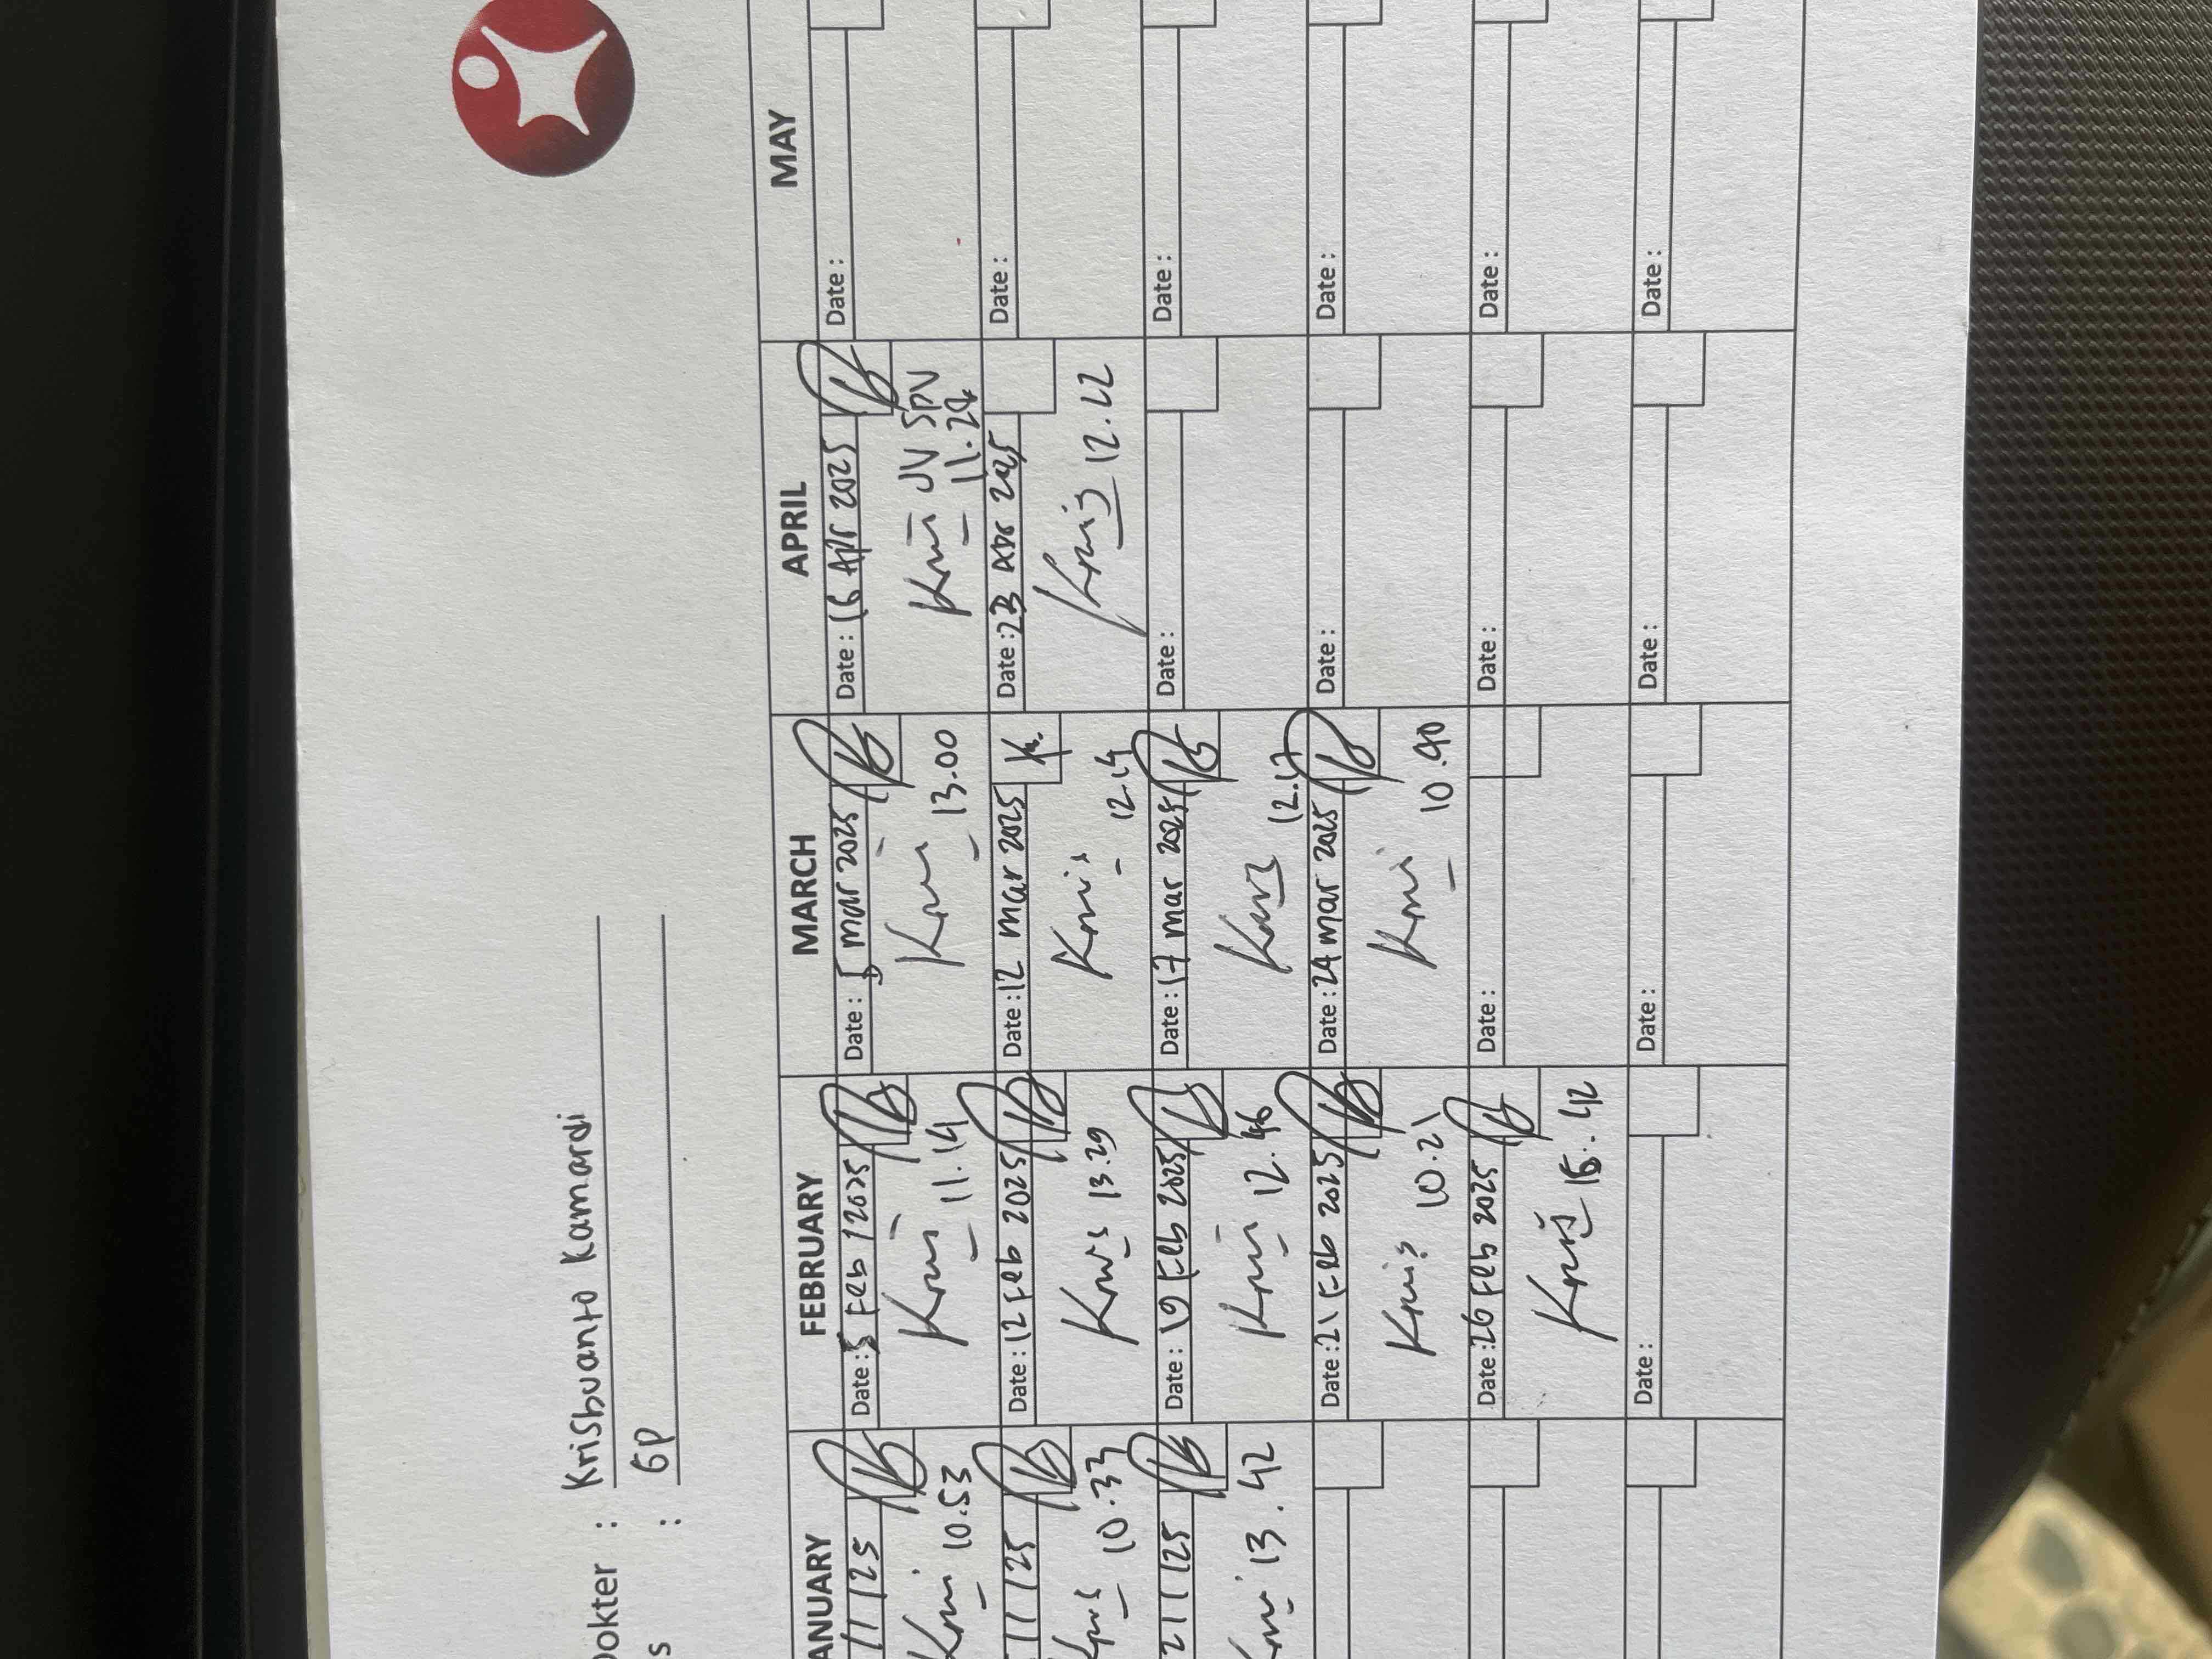 Dokter : Krisbuanto Kamardi
s : GP
ANUARY FEBRUARY MARCH APRIL MAY
/1/25 Date: 5 Feb 2025 Date: 5 mar 2025 Date: 16 Apr 2025 Date:
Kris 10.53 Kris 11.14 Kris 13.00 Kris JV SPV
11.24
/1/25 Date: 12 Feb 2025 Date: 12 mar 2025 Date: 23 Apr 2025 Date:
Kris 10.33 Kris 13.29 Kris 12.14 Kris 12.22
21/1/25 Date: 19 Feb 2025 Date: 17 mar 2025 Date: Date:
Kris 13.42 Kris 12.46 Kris 12.17
Date: 21 Feb 2025 Date: 24 mar 2025 Date: Date:
Kris 10.21 Kris 10.40
Date: 26 Feb 2025 Date: Date: Date:
Kris 15.42
Date: Date: Date: Date: